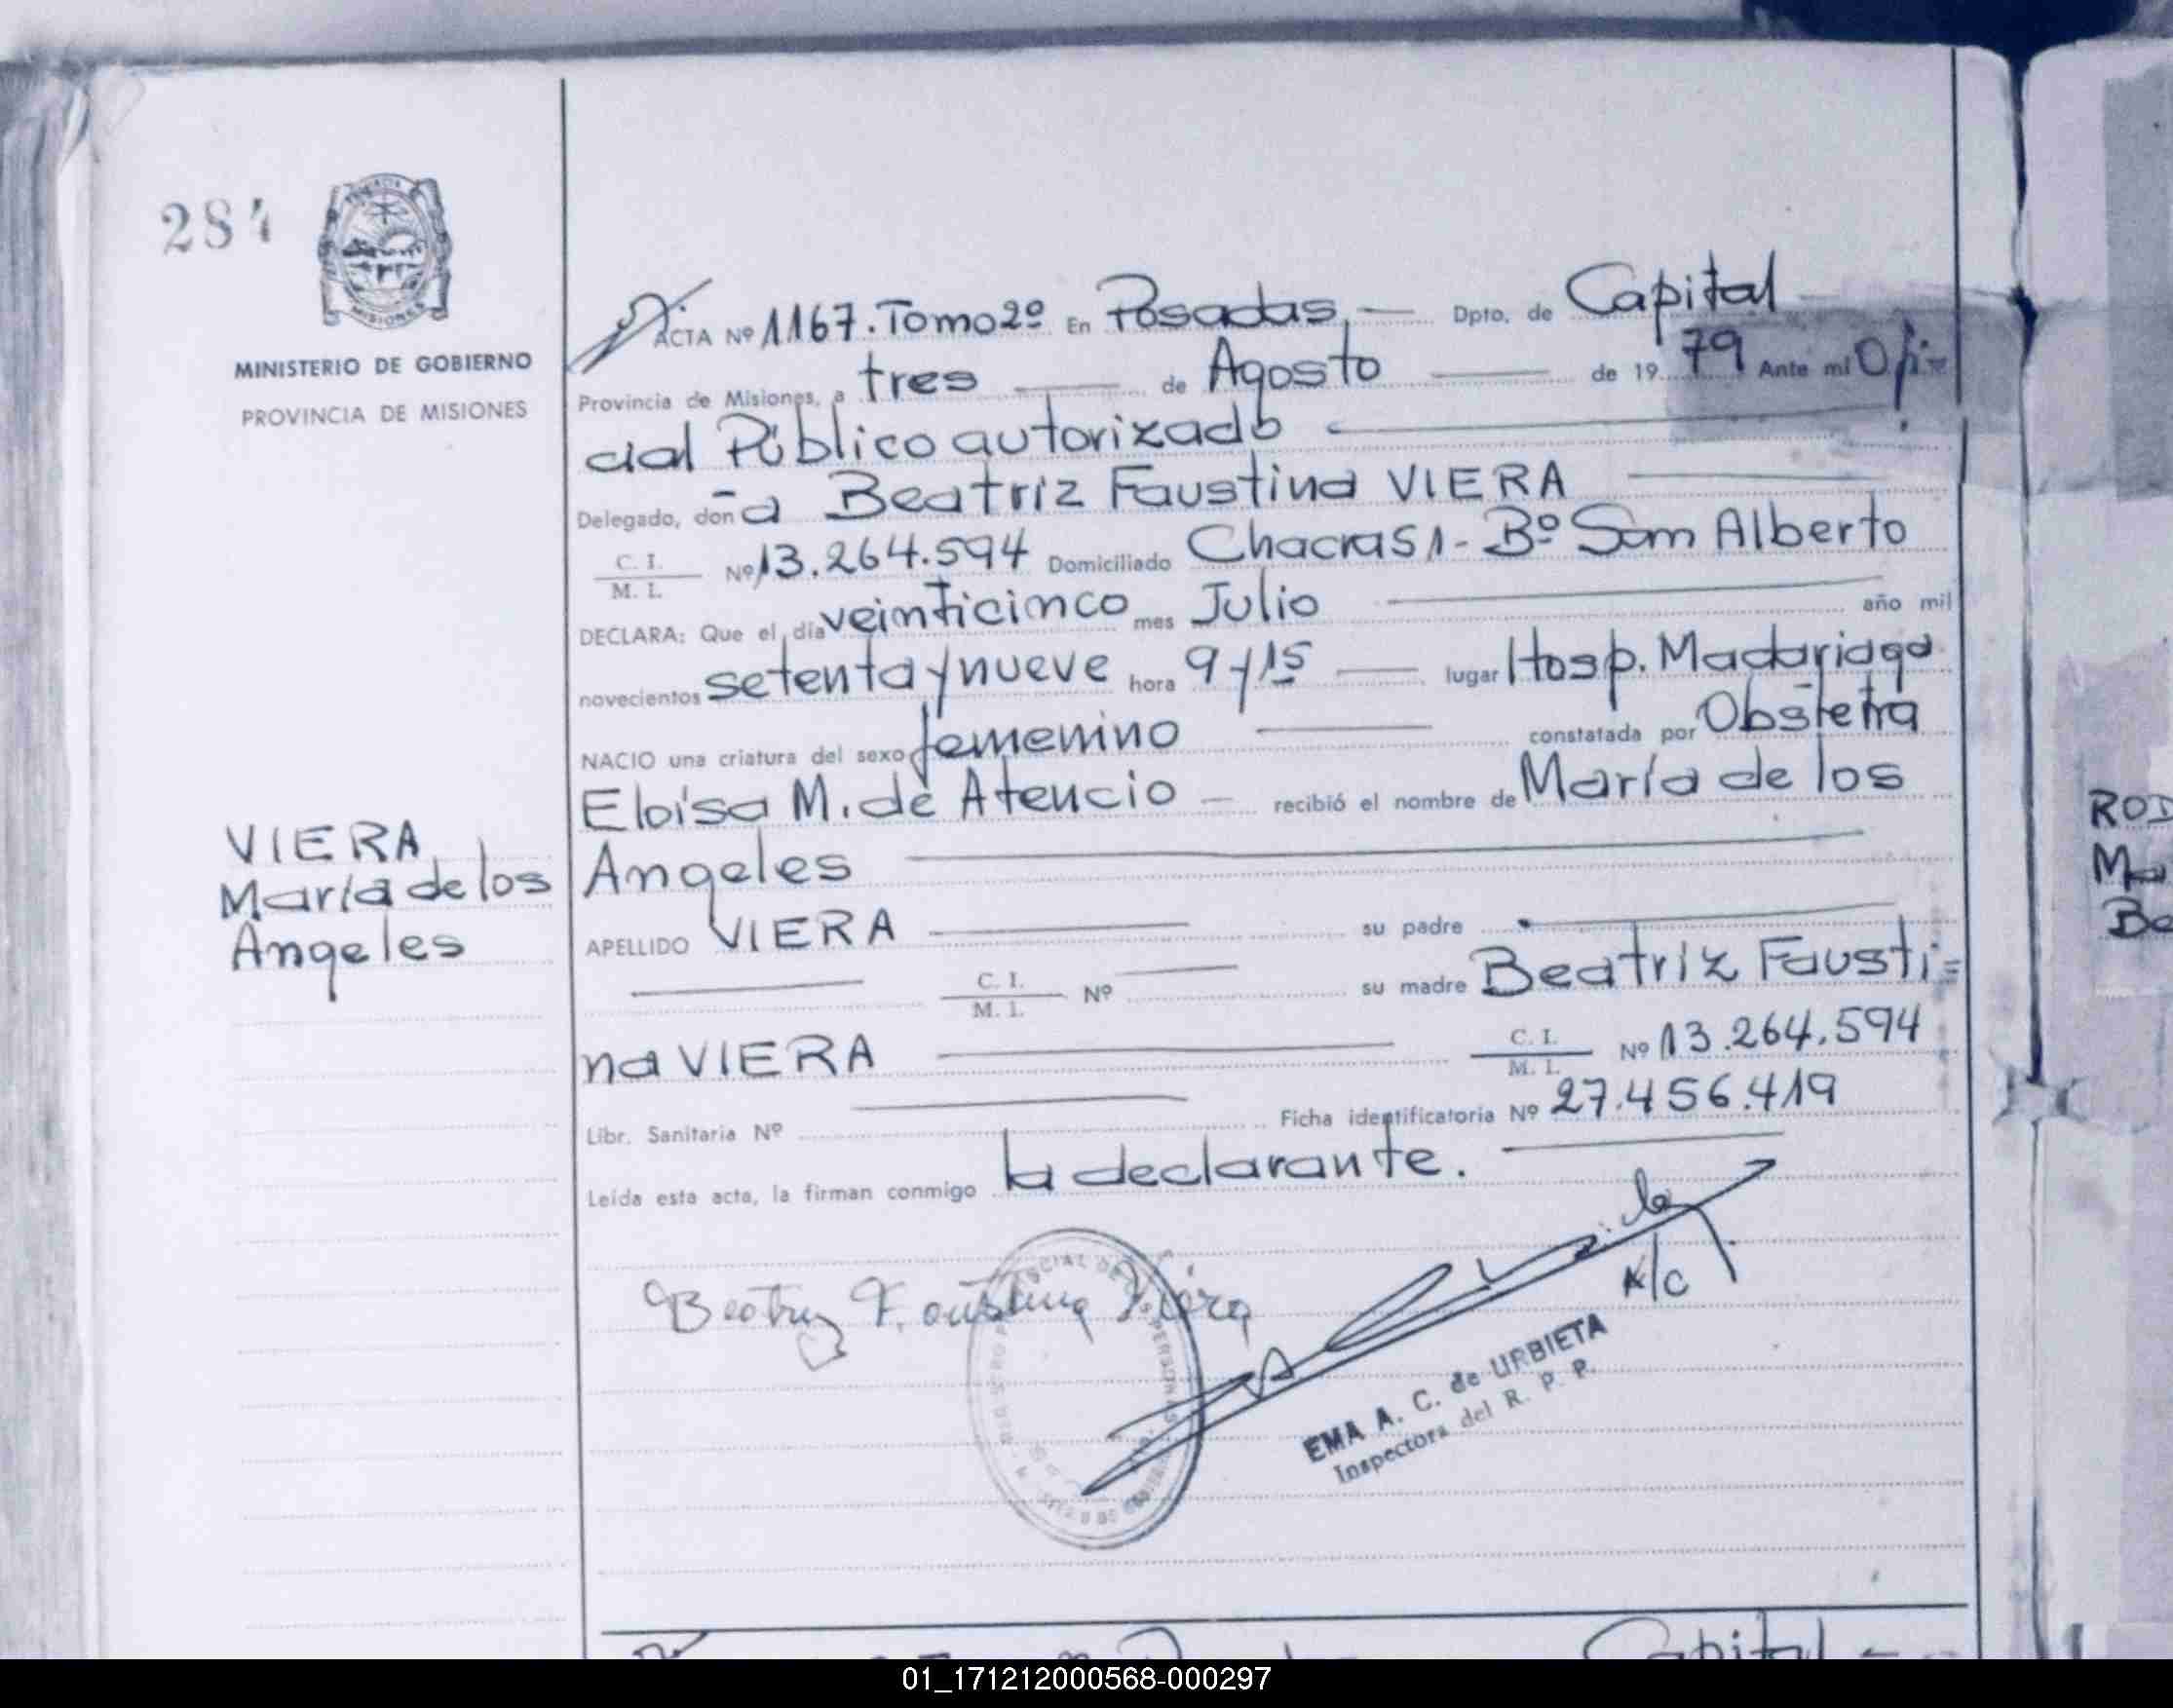 284
MISIONES
MINISTERIO DE GOBIERNO
PROVINCIA DE MISIONES
ACTA Nº 1167. Tomo 2º En Posadas, Dpto. de Capital
Provincia de Misiones, a tres de Agosto de 1979 Ante mi Ofi=
cial Público autorizado
Delegado, doña Beatriz Faustina VIERA
C. I.
M. I. Nº 13.264.594 Domiciliado Chacra 51 - Bº San Alberto
DECLARA: Que el día veinticinco mes Julio año mil
novecientos setenta y nueve hora 9 y 15 lugar Hosp. Madariaga
NACIO una criatura del sexo femenino constatada por Obstetra
Eloisa M. de Atencio recibió el nombre de María de los
Angeles
APELLIDO VIERA su padre
C. I.
M. I. Nº su madre Beatriz Fausti=
na VIERA C. I.
M. I. Nº 13.264.594
Libr. Sanitaria Nº Ficha identificatoria Nº 27.456.419
Leída esta acta, la firman conmigo la declarante.
VIERA
María de los
Angeles
Beatriz Faustina Viera
A/C
EMA A. C. de URBIETA
Inspectora del R. P. P.
ROD
Ma
Be
Capital
01_171212000568-000297